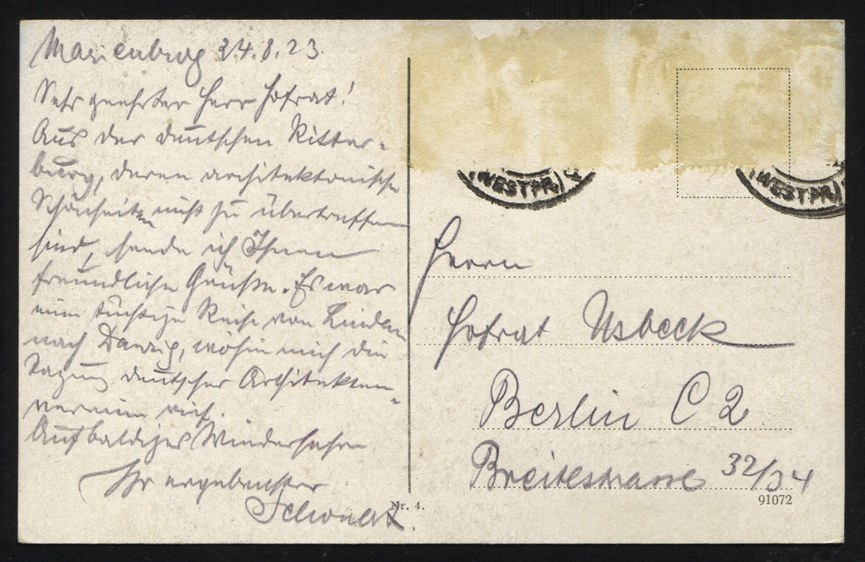 Marienburg 24.8.23.
Sehr geehrter Herr Hofrat!
Aus der deutschen Ritter-
burg, deren architektonische
Schönheiten nicht zu übertreffen
sind, sende ich Ihnen
freundliche Grüße. Es war
eine tüchtige Reise von Lindau
nach Danzig, wohin mich die
Tagung deutscher Architekten-
vereine rief.
Auf baldiges Wiedersehen
Ihr ergebenster
(WESTPR.)
(WESTPR.)
Herrn
Hofrat Usbeck
Berlin C 2
Breitestrasse 32/34
Nr. 4.
91072